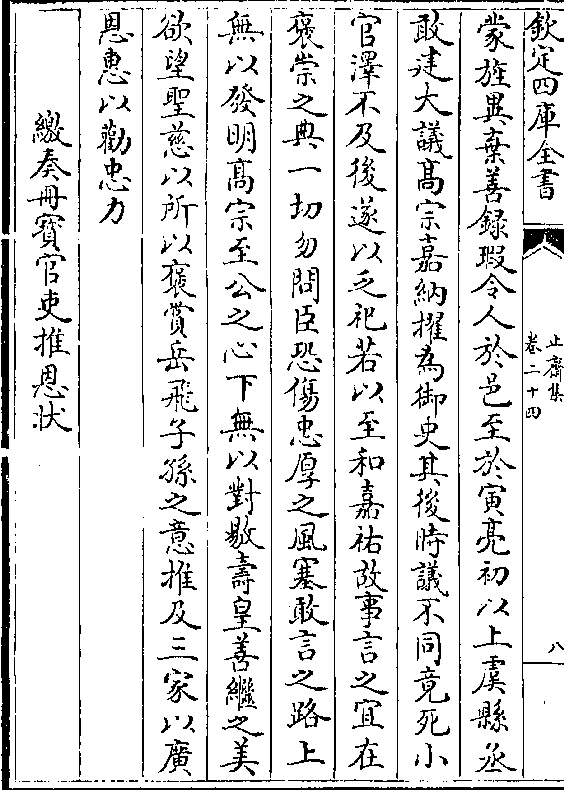 欽定四庫全書
止齋集
卷二十四
八
蒙旌異棄善録瑕令人於邑至於寅亮初以上虞縣丞
敢建大議髙宗嘉納擢為御史其後時議不同竟死小
官澤不及後遂以乏祀若以至和嘉祐故事言之宜在
褒崇之典一切勿問臣恐傷忠厚之風塞敢言之路上
無以發明髙宗至公之心下無以對敭壽皇善繼之美
欲望聖慈以所以褒賞岳飛子孫之意推及三家以廣
恩惠以勸忠力
繳奏冊寳官吏推恩狀